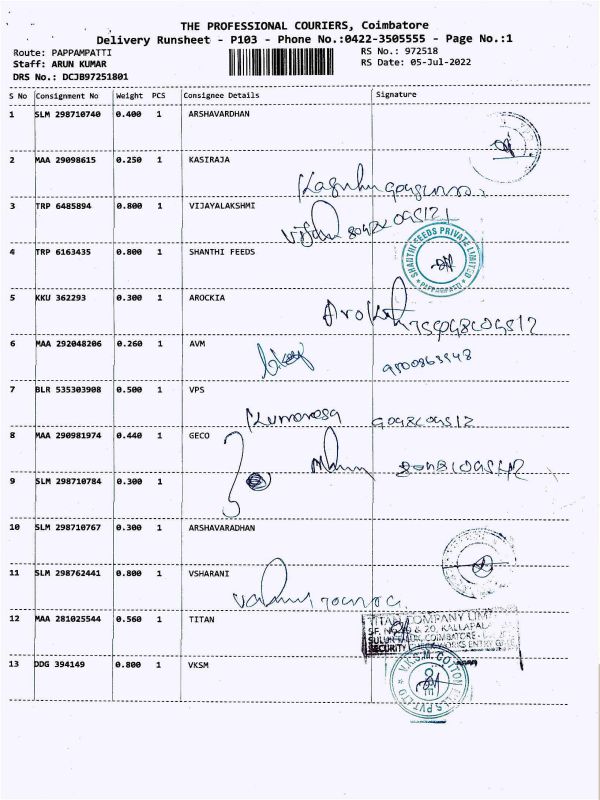 THE PROFESSIONAL COURIERS, Coimbatore
Delivery Runsheet - P103 - Phone No.:0422-3505555 - Page No.:1
Route: PAPPAMPATTI RS No.: 972518
Staff: ARUN KUMAR RS Date: 05-Jul-2022
DRS No.: DCJB97251801
S No Consignment No Weight PCS Consignee Details Signature
1 SLM 298710740 0.400 1 ARSHAVARDHAN
2 MAA 29098615 0.250 1 KASIRAJA
3 TRP 6485894 0.800 1 VIJAYALAKSHMI
4 TRP 6163435 0.800 1 SHANTHI FEEDS
SHANTHI FEEDS PRIVATE LIMITED
5 KKU 362293 0.300 1 AROCKIA
6 MAA 292048206 0.260 1 AVM
7 BLR 535303908 0.500 1 VPS
8 MAA 290981974 0.440 1 GECO
9 SLM 298710784 0.300 1
10 SLM 298710767 0.300 1 ARSHAVARADHAN
11 SLM 298762441 0.800 1 VSHARANI
12 MAA 281025544 0.560 1 TITAN
TITAN COMPANY
& 20, KALLAPAL
COIMBATORE
SECURITY WORKS ENTRY
13 DDG 394149 0.800 1 VKSM
V.K.S.M. COTTON MILLS PVT LTD